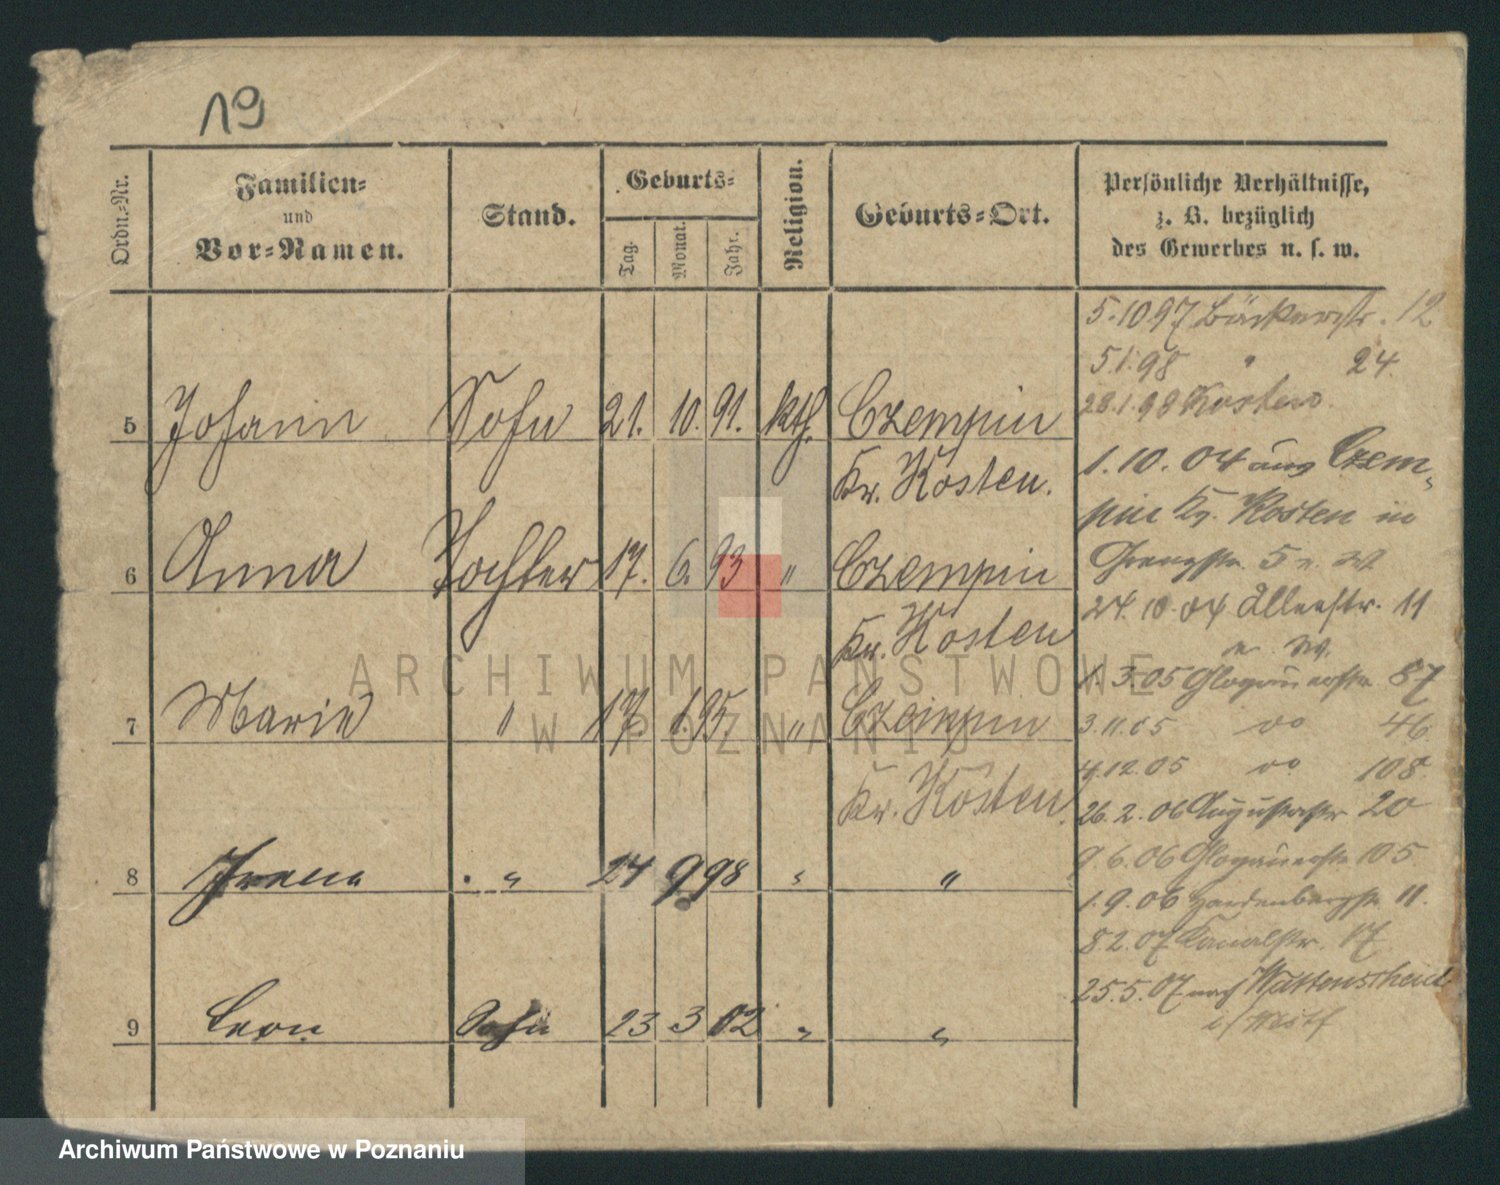 19
Ordn.-Nr.
Familien-
und
Vor-Namen.
Stand.
Geburts-
Tag.
Monat.
Jahr.
Religion.
Geburts-Ort.
Persönliche Verhältnisse,
z. B. bezüglich
des Gewerbes u. s. w.
5 Johann Sohn 21. 10. 91. kth. Czempin
Kr. Kosten.
6 Anna Tochter 17. 6. 93 " Czempin
Kr. Kosten
7 Marie " 17. 1. 95. " Czempin
Kr. Kosten.
8 Irena " 24 9 98 " "
9 Leon Sohn 23 3 02 " "
5.10 97 Bäckerstr. 12
5.1.98 " 24
28.1.98 Kosten
1.10.04 aus Czem-
pin Kr. Kosten in
5
24.10.04 Alleestr. 11
1.3.05 Glogauerstr. 87
3.11.05 do 46
4.12.05 do 108
26.2.06 Augustastr 20
9.6.06 Glogauerstr 105
1.9.06 Hardenbergstr 11.
8 2.07 Kanalstr. 17
25.5.07 nach Wattenscheid
i/ Westf
ARCHIWUM PAŃSTWOWE
W POZNANIU
Archiwum Państwowe w Poznaniu